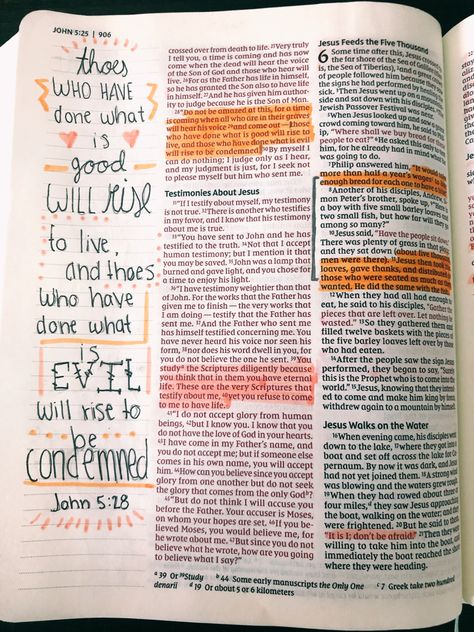 JOHN 5:25 | 906
thoes
WHO HAVE
done what
is
good
WILL RISE
to live,
and thoes
who have
done what
is
EVIL
will rise to
be
condemned
John 5:28
crossed over from death to life. 25Very truly
I tell you, a time is coming and has now
come when the dead will hear the voice
of the Son of God and those who hear will
live. 26For as the Father has life in himself,
so he has granted the Son also to have life
in himself. 27And he has given him author-
ity to judge because he is the Son of Man.
28"Do not be amazed at this, for a time
is coming when all who are in their graves
will hear his voice 29and come out—those
who have done what is good will rise to
live, and those who have done what is evil
will rise to be condemned. 30By myself I
can do nothing; I judge only as I hear,
and my judgment is just, for I seek not
to please myself but him who sent me.
Testimonies About Jesus
31"If I testify about myself, my testimony
is not true. 32There is another who testifies
in my favor, and I know that his testimony
about me is true.
33"You have sent to John and he has
testified to the truth. 34Not that I accept
human testimony; but I mention it that
you may be saved. 35John was a lamp that
burned and gave light, and you chose for
a time to enjoy his light.
36"I have testimony weightier than that
of John. For the works that the Father has
given me to finish—the very works that
I am doing—testify that the Father has
sent me. 37And the Father who sent me
has himself testified concerning me. You
have never heard his voice nor seen his
form, 38nor does his word dwell in you, for
you do not believe the one he sent. 39You
study a the Scriptures diligently because
you think that in them you have eternal
life. These are the very Scriptures that
testify about me, 40yet you refuse to come
to me to have life.
41"I do not accept glory from human
beings, 42but I know you. I know that you
do not have the love of God in your hearts.
43I have come in my Father's name, and
you do not accept me; but if someone else
comes in his own name, you will accept
him. 44How can you believe since you accept
glory from one another but do not seek
the glory that comes from the only God b?
45"But do not think I will accuse you
before the Father. Your accuser is Moses,
on whom your hopes are set. 46If you be-
lieved Moses, you would believe me, for
he wrote about me. 47But since you do not
believe what he wrote, how are you going
to believe what I say?"
Jesus Feeds the Five Thousand
6 Some time after this, Jesus crossed
the far shore of the Sea of Galilee
is, the Sea of Tiberias), 2and a great crowd
of people followed him because they
the signs he had performed by healing
sick. 3Then Jesus went up on a
side and sat down with his disciples.
Jewish Passover Festival was near.
5When Jesus looked up and saw a great
crowd coming toward him, he said to
ip, "Where shall we buy bread for these
people to eat?" 6He asked this only to
him, for he already had in mind what he
was going to do.
7Philip answered him, "It would take
more than half a year's wages c to buy
enough bread for each one to have a bite!"
8Another of his disciples, Andrew,
mon Peter's brother, spoke up, 9"Here is
a boy with five small barley loaves and
two small fish, but how far will they go
among so many?"
10Jesus said, "Have the people sit down."
There was plenty of grass in that place,
and they sat down (about five thousand
men were there). 11Jesus then took the
loaves, gave thanks, and distributed to
those who were seated as much as they
wanted. He did the same with the fish.
12When they had all had enough to
eat, he said to his disciples, "Gather the
pieces that are left over. Let nothing be
wasted." 13So they gathered them and
filled twelve baskets with the pieces of
the five barley loaves left over by those
who had eaten.
14After the people saw the sign Jesus
performed, they began to say, "Surely
this is the Prophet who is to come into the
world." 15Jesus, knowing that they intend-
ed to come and make him king by force,
withdrew again to a mountain by himself.
Jesus Walks on the Water
16When evening came, his disciples went
down to the lake, 17where they got into a
boat and set off across the lake for Ca-
pernaum. By now it was dark, and Jesus
had not yet joined them. 18A strong wind
was blowing and the waters grew rough.
19When they had rowed about three or
four miles, d they saw Jesus approaching
the boat, walking on the water; and they
were frightened. 20But he said to them,
"It is I; don't be afraid." 21Then they were
willing to take him into the boat, and
immediately the boat reached the shore
where they were heading.
a 39 Or 39Study b 44 Some early manuscripts the Only One c 7 Greek take two hundred
denarii d 19 Or about 5 or 6 kilometers